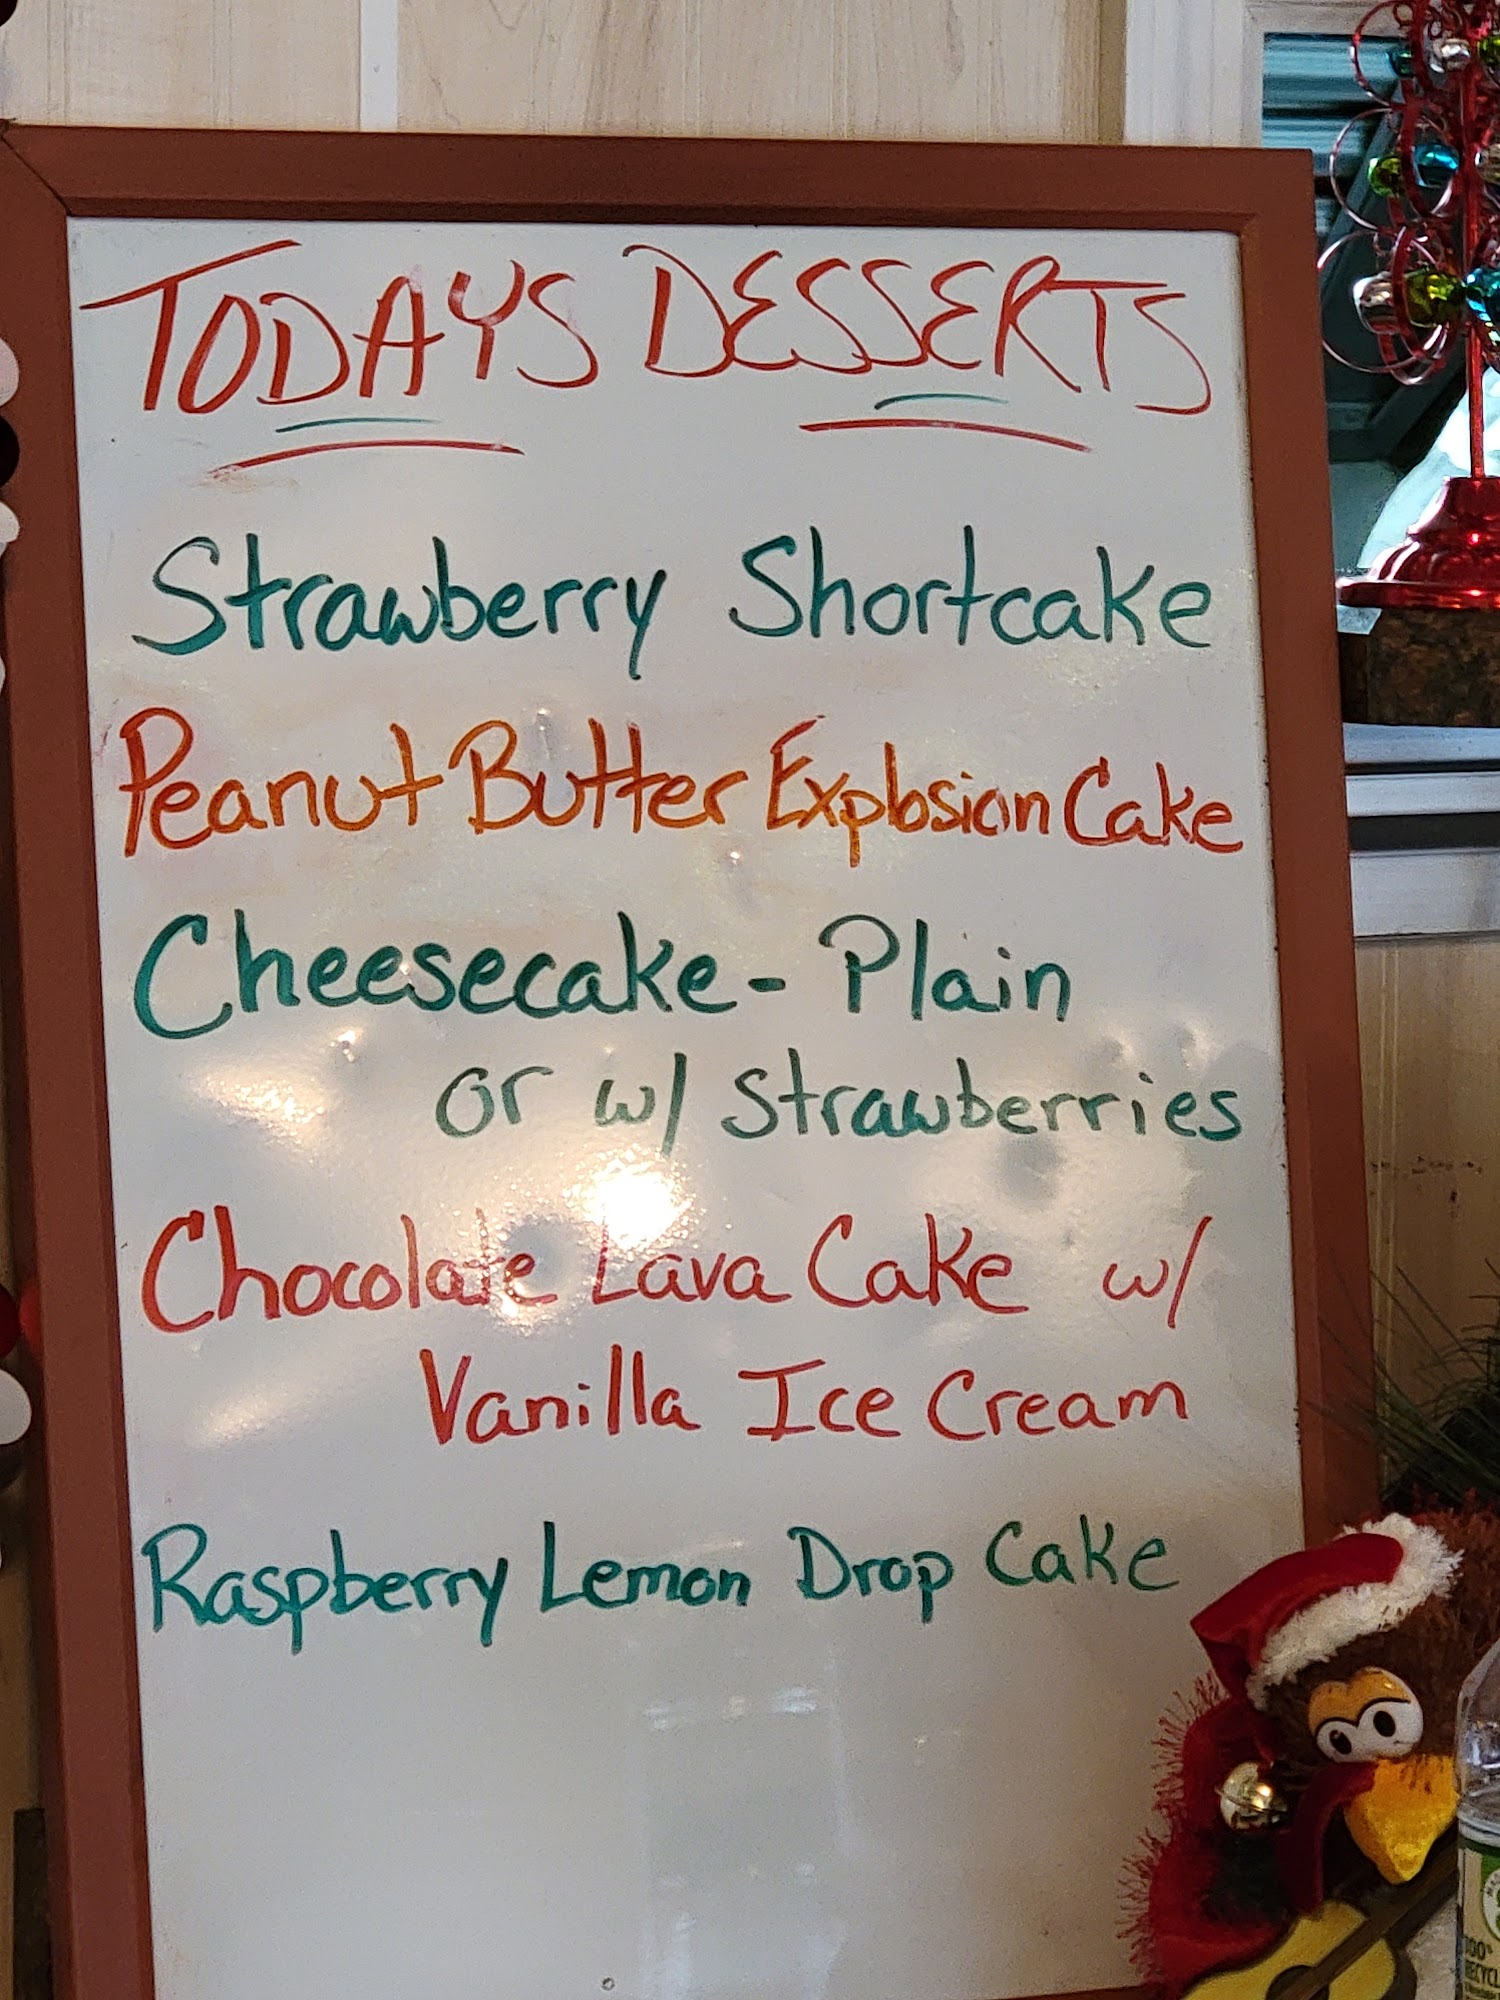 TODAYS DESSERTS
Strawberry Shortcake
Peanut Butter Explosion Cake
Cheesecake - Plain
or w/ strawberries
Chocolate Lava Cake w/
Vanilla Ice Cream
Raspberry Lemon Drop Cake
100%